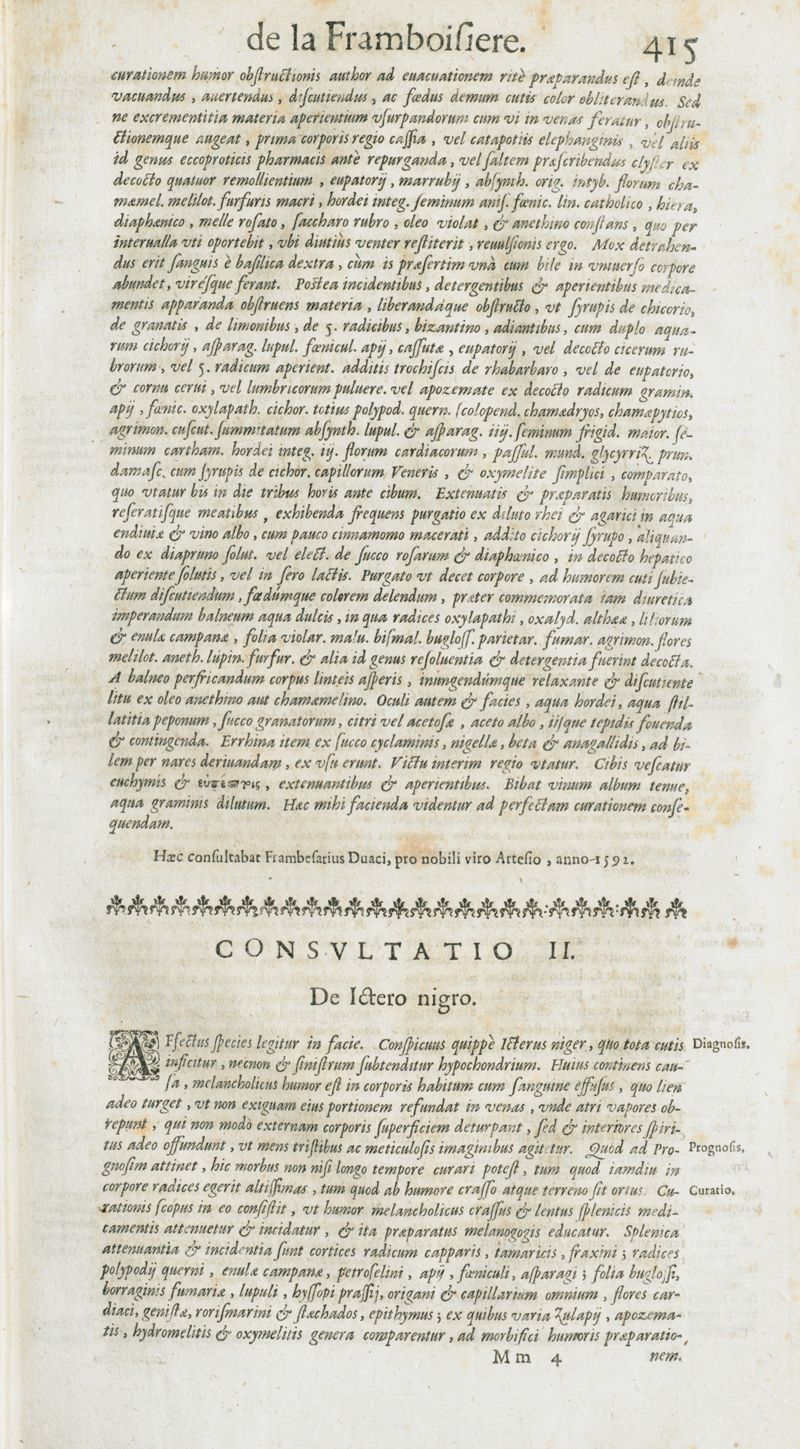 de la Framboiſiere. 415
curationem humor obſtructionis author ad euacuationem ritè præparandus eſt, deinde
vacuandus, auertendus, diſcutiendus, ac fœdus demum cutis color obliterandus. Sed
ne excrementitia materia aperientium vſurpandorum cum vi in venas feratur, obſtru-
ctionemque augeat, prima corporis regio caſſia, vel catapotiis elephanginis, vel aliis
id genus eccoproticis pharmacis antè repurganda, vel ſaltem præſcribendus clyſter ex
decocto quatuor remollientium, eupatorij, marrubij, abſynth. orig. intyb. florum cha-
mæmel. melilot. furfuris macri, hordei integ. ſeminum aniſ. fœnic. lin. catholico, hiera,
diaphœnico, melle roſato, ſaccharo rubro, oleo violat, & anethino conſtans, quo per
interualla vti oportebit, vbi diutiùs venter reſtiterit, reuulſionis ergo. Mox detrahen-
dus erit ſanguis è baſilica dextra, cùm is præſertim vnà cum bile in vniuerſo corpore
abundet, viréſque ferant. Poſtea incidentibus, detergentibus & aperientibus medica-
mentis apparanda obſtruens materia, liberandáque obſtructo, vt ſyrupis de chicorio,
de granatis, de limonibus, de 5. radicibus, bizantino, adiantibus, cum duplo aqua-
rum cichorij, aſparag. lupul. fœnicul. apij, caſſutæ, eupatorij, vel decocto cicerum ru-
brorum, vel 5. radicum aperient. additis trochiſcis de rhabarbaro, vel de eupatorio,
& cornu cerui, vel lumbricorum puluere. vel apozemate ex decocto radicum gramin.
apij, fœnic. oxylapath. cichor. totius polypod. quern. ſcolopend. chamædryos, chamæpytios,
agrimon. cuſcut. ſummitatum abſynth. lupul. & aſparag. iiij. ſeminum frigid. maior. ſe-
minum cartham. hordei integ. ij. florum cardiacorum, paſſul. mund. glycyrriz. prun.
damaſc. cum ſyrupis de cichor. capillorum Veneris, & oxymelite ſimplici, comparato,
quo vtatur bis in die tribus horis ante cibum. Extenuatis & præparatis humoribus,
reſeratiſque meatibus, exhibenda frequens purgatio ex diluto rhei & agarici in aqua
endiuiæ & vino albo, cum pauco cinnamomo macerati, addito cichorij ſyrupo, aliquan-
do ex diapruno ſolut. vel elect. de ſucco roſarum & diaphœnico, in decocto hepatico
aperiente ſolutis, vel in ſero lactis. Purgato vt decet corpore, ad humorem cuti ſubie-
ctum diſcutiendum, fœdúmque colorem delendum, præter commemorata iam diuretica
imperandum balneum aqua dulcis, in qua radices oxylapathi, oxalyd. althææ, liliorum
& enulæ campanæ, folia violar. malu. biſmal. bugloſſ. parietar. fumar. agrimon. flores
melilot. aneth. lupin. furfur. & alia id genus reſoluentia & detergentia fuerint decocta.
A balneo perfricandum corpus linteis aſperis, inungendúmque relaxante & diſcutiente
litu ex oleo anethino aut chamæmelino. Oculi autem & facies, aqua hordei, aqua ſtil-
latitia peponum, ſucco granatorum, citri vel acetoſæ, aceto albo, iiſque tepidis fouenda
& contingenda. Errhina item ex ſucco cyclaminis, nigellæ, beta & anagallidis, ad bi-
lem per nares deriuandam, ex vſu erunt. Victu interim regio vtatur. Cibis veſcatur
euchymis & , extenuantibus & aperientibus. Bibat vinum album tenue,
aqua graminis dilutum. Hæc mihi facienda videntur ad perfectam curationem conſe-
quendam.
Hæc conſultabat Frambeſarius Duaci, pro nobili viro Arteſio, anno 1592.
CONSVLTATIO II.
De Ictero nigro.
AFfectus ſpecies legitur in facie. Conſpicuus quippè Icterus niger, quo tota cutis Diagnoſis.
inficitur, necnon & ſiniſtrum ſubtenditur hypochondrium. Huius continens cau-
ſa, melancholicus humor eſt in corporis habitum cum ſanguine effuſus, quo lien
adeo turget, vt non exiguam eius portionem refundat in venas, vnde atri vapores ob-
repunt, qui non modò externam corporis ſuperficiem deturpant, ſed & interiores ſpiri-
tus adeo offundunt, vt mens triſtibus ac meticuloſis imaginibus agitetur. Quod ad Pro- Prognoſis.
gnoſim attinet, hic morbus non niſi longo tempore curari poteſt, tum quod iamdiu in
corpore radices egerit altiſſimas, tum quod ab humore craſſo atque terreno ſit ortus. Cu- Curatio.
rationis ſcopus in eo conſiſtit, vt humor melancholicus craſſus & lentus ſplenicis medi-
camentis attenuetur & incidatur, & ita præparatus melanogogis educatur. Splenica
attenuantia & incidentia ſunt cortices radicum capparis, tamaricis, fraxini; radices
polypodij querni, enulæ campanæ, petroſelini, apij, fœniculi, aſparagi; folia bugloſſi,
borraginis fumariæ, lupuli, hyſſopi praſſij, origani & capillarium omnium, flores car-
diaci, geniſtæ, roriſmarini & ſtæchados, epithymus; ex quibus varia Zulapij, apozema-
tis, hydromelitis & oxymelitis genera comparentur, ad morbifici humoris præparatio-
M m 4 nem.